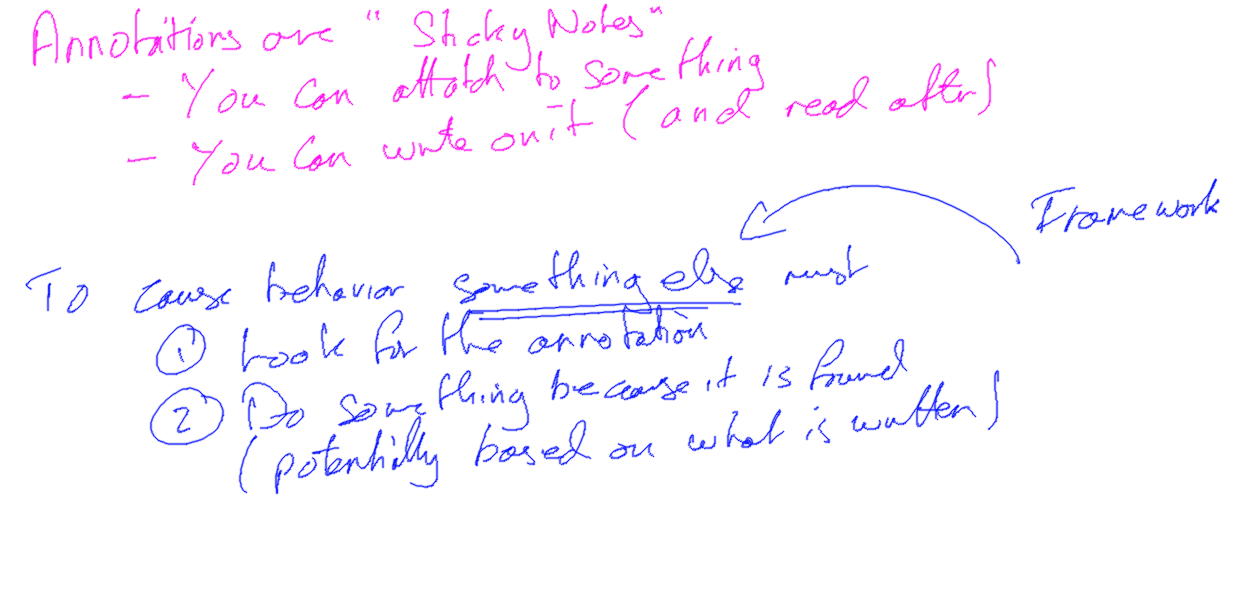 Annotations are "Sticky Notes"
- You can attatch to something
- You can write on it (and read after)
Framework
To cause behavior something else must
① Look for the annotation
② Do something because it is found
(potentially based on what is written)